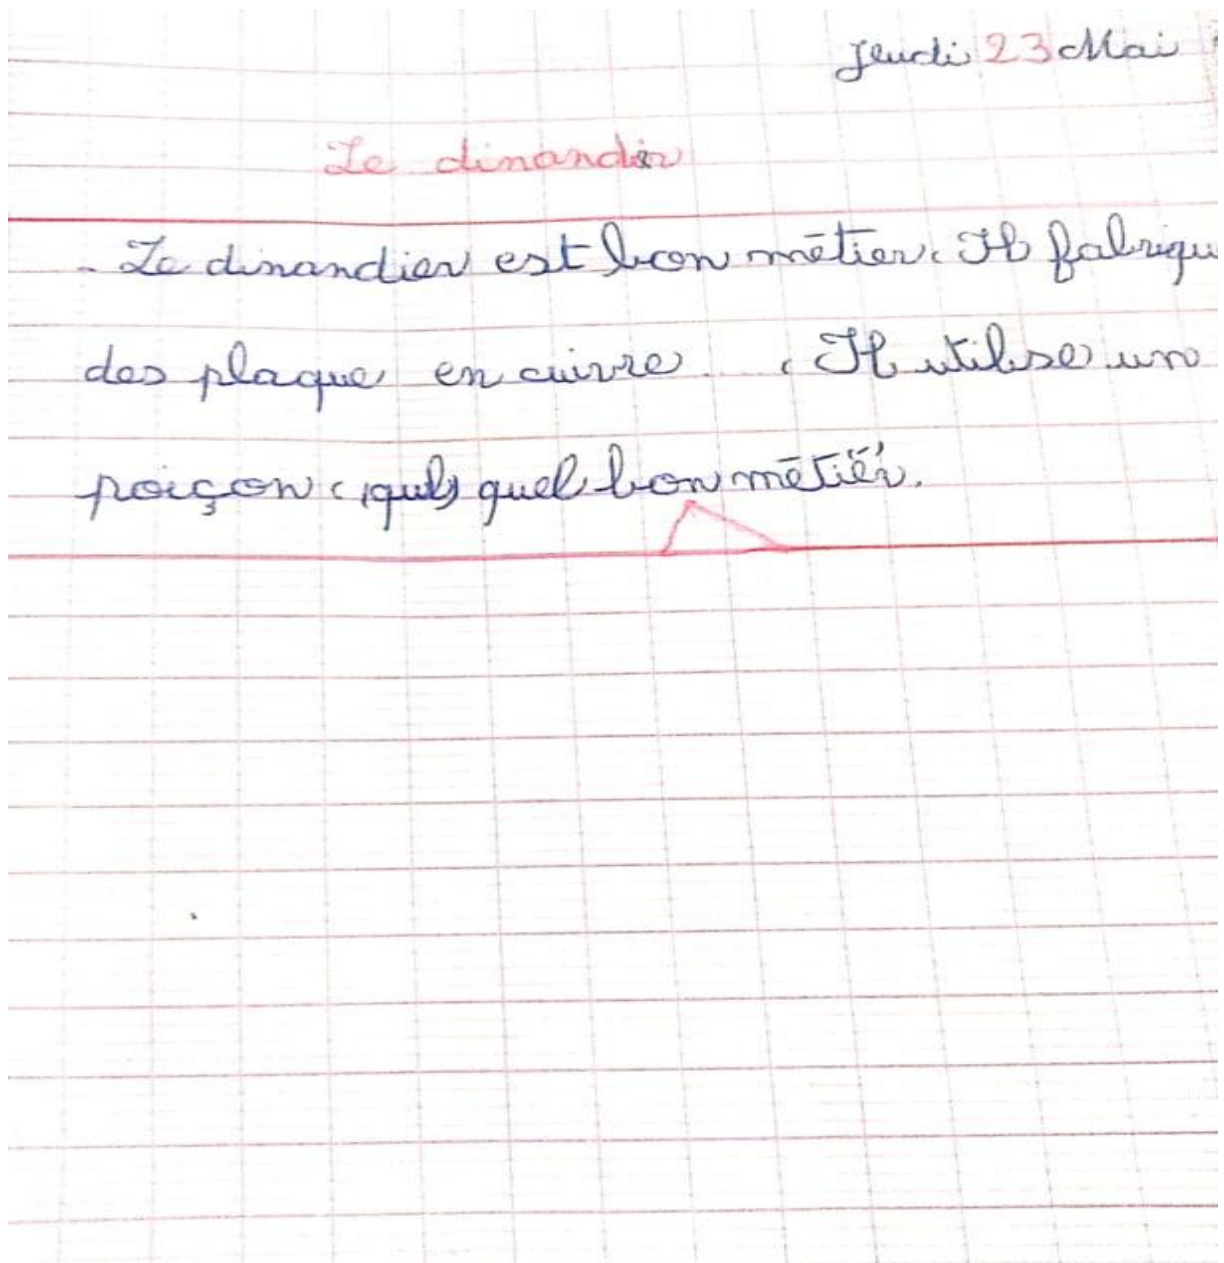 Jeudi 23 Mai
Le dinandier
- Le dinandier est bon métier. Il fabrique
des plaque en cuivre . Il utilse un
poiçon. (qul) quel bon métiér.